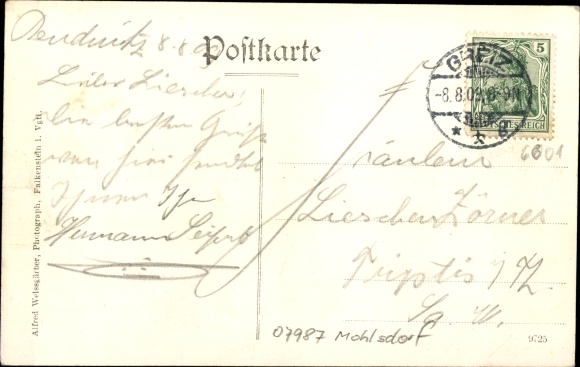 8.8.09
Postkarte
Lieber Lieschen,
die besten Grüße
von hier sendet
Ihnen Ihr
Hermann Seifert
Alfred Weissgärber, Photograph, Falkenstein i. Vgtl.
GREIZ
-8.8.09. 8-9N
* * e
5
DEUTSCHES REICH
6601
Fräulein
Lieschen Zörner
Triptis i/Th.
Sa. W.
07987 Mohlsdorf
9725